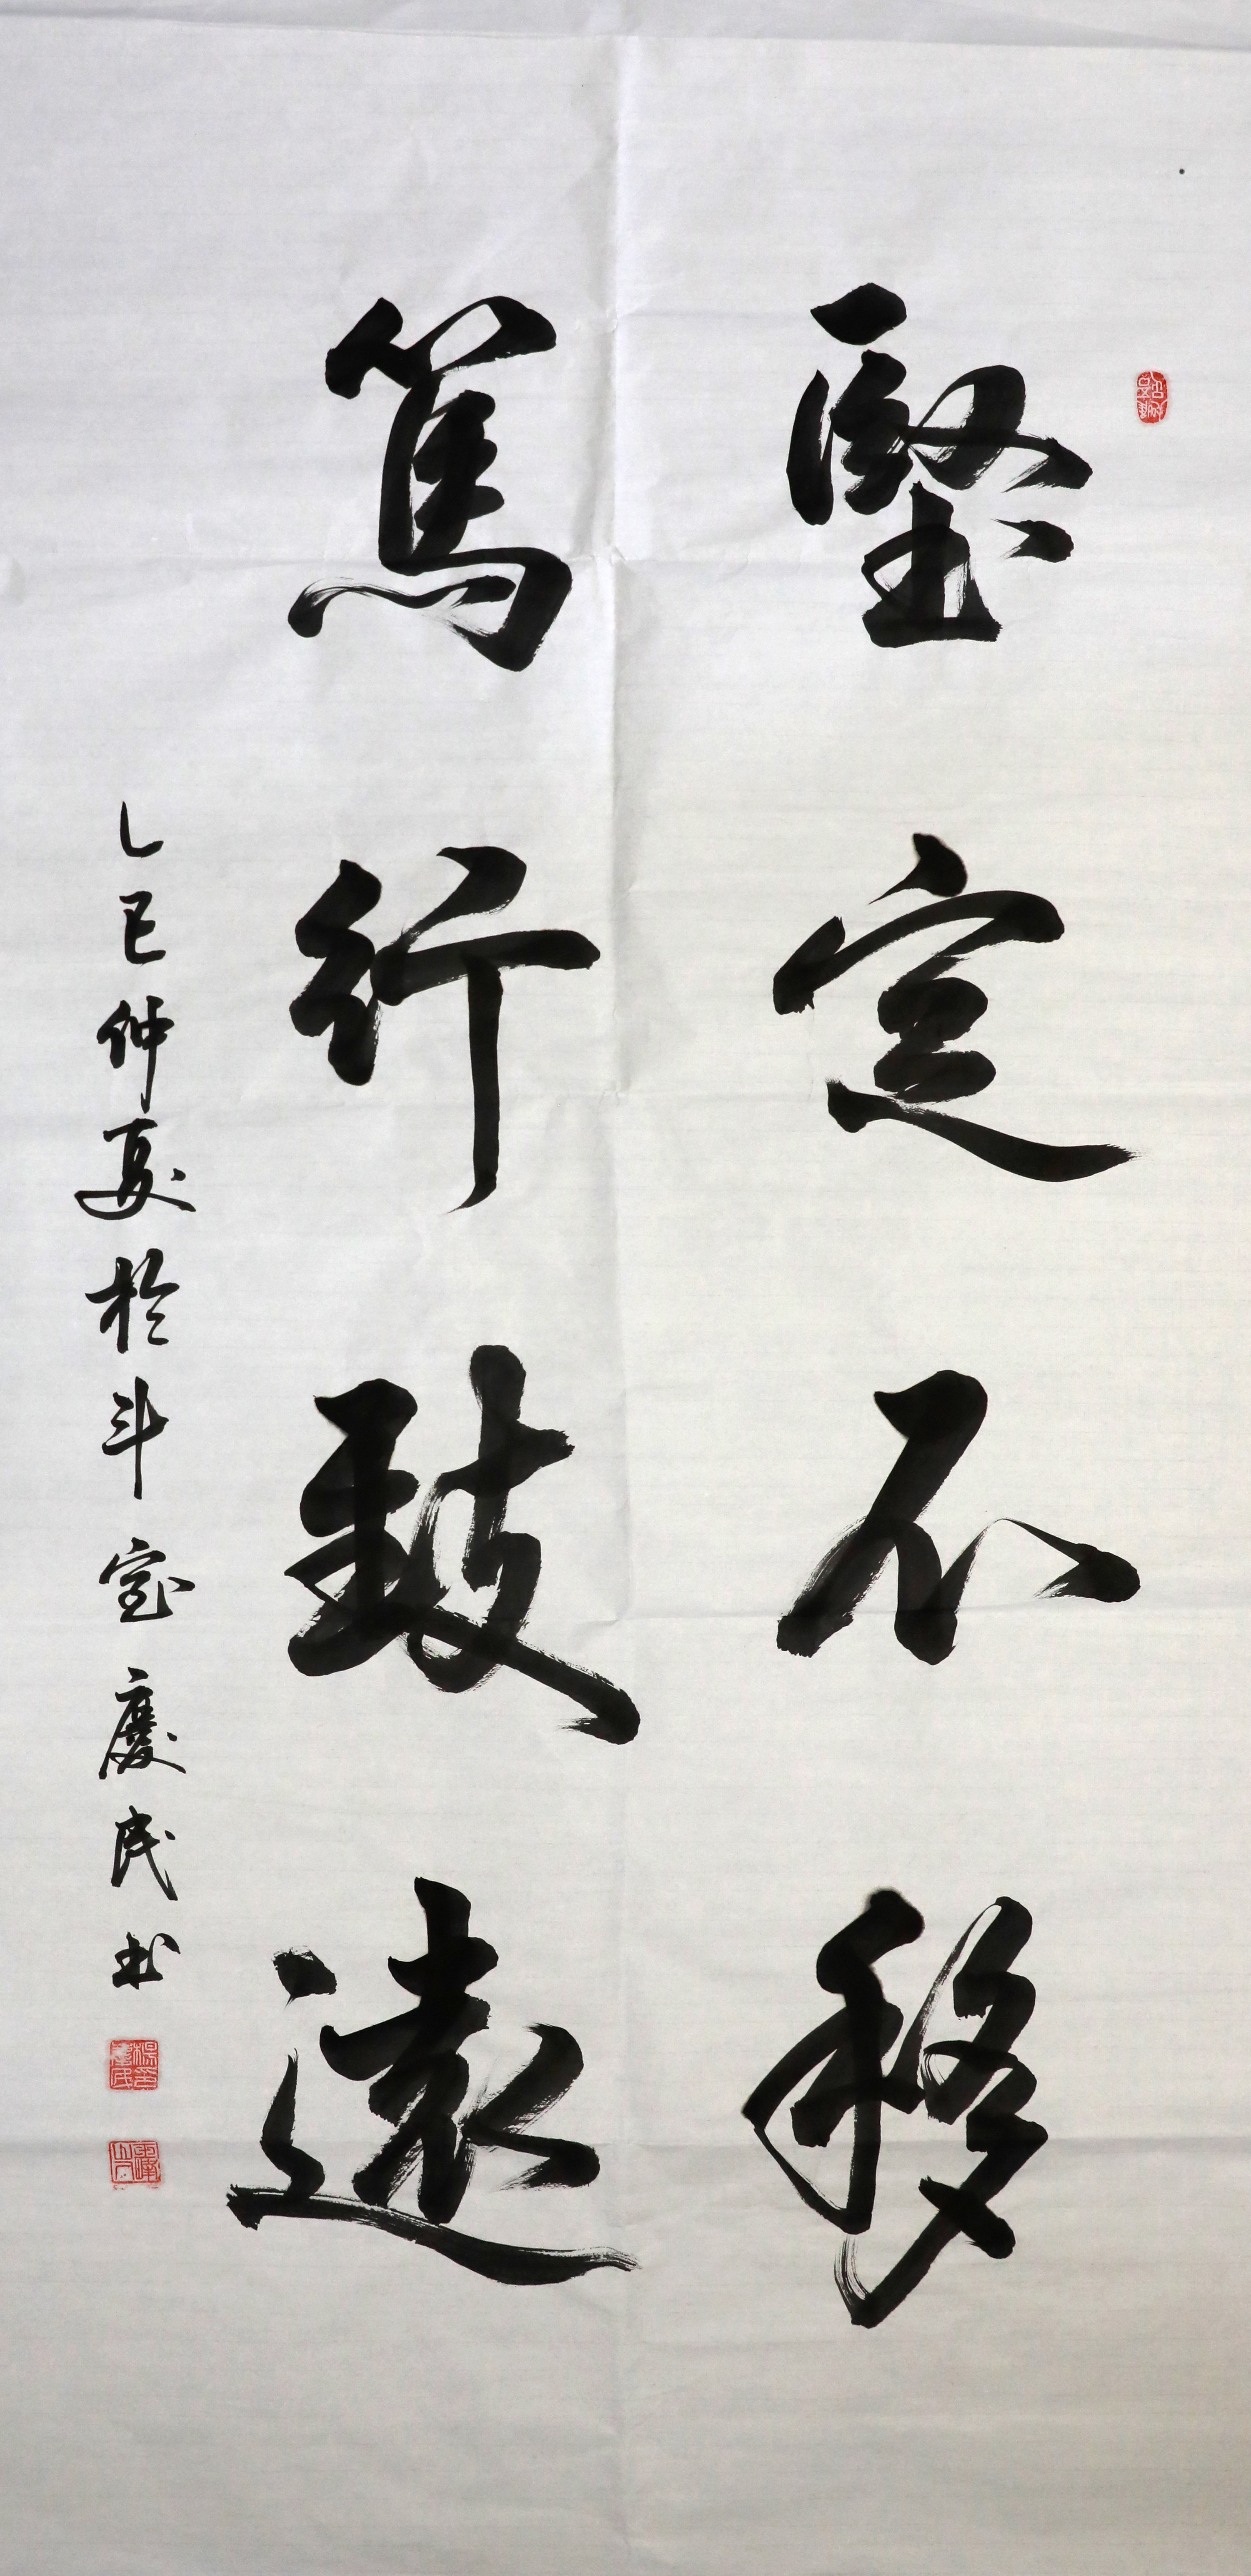 堅定不移
篤行致遠
乙巳仲夏於斗室慶民书